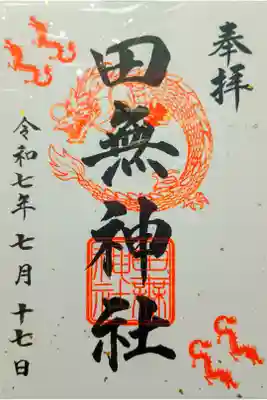 奉拝
田無神社
令和七年七月十七日
田無神社